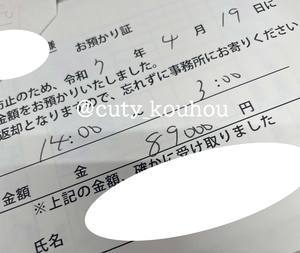 様 お預かり証
防止のため、令和 7 年 4 月 19 日に
金額をお預かりいたしました。
返却となりますので、忘れずに事務所にお寄りください
14:00 3:00
@cuty_kouhou
金額 金 89000 円
※上記の金額、確かに受け取りました
氏名